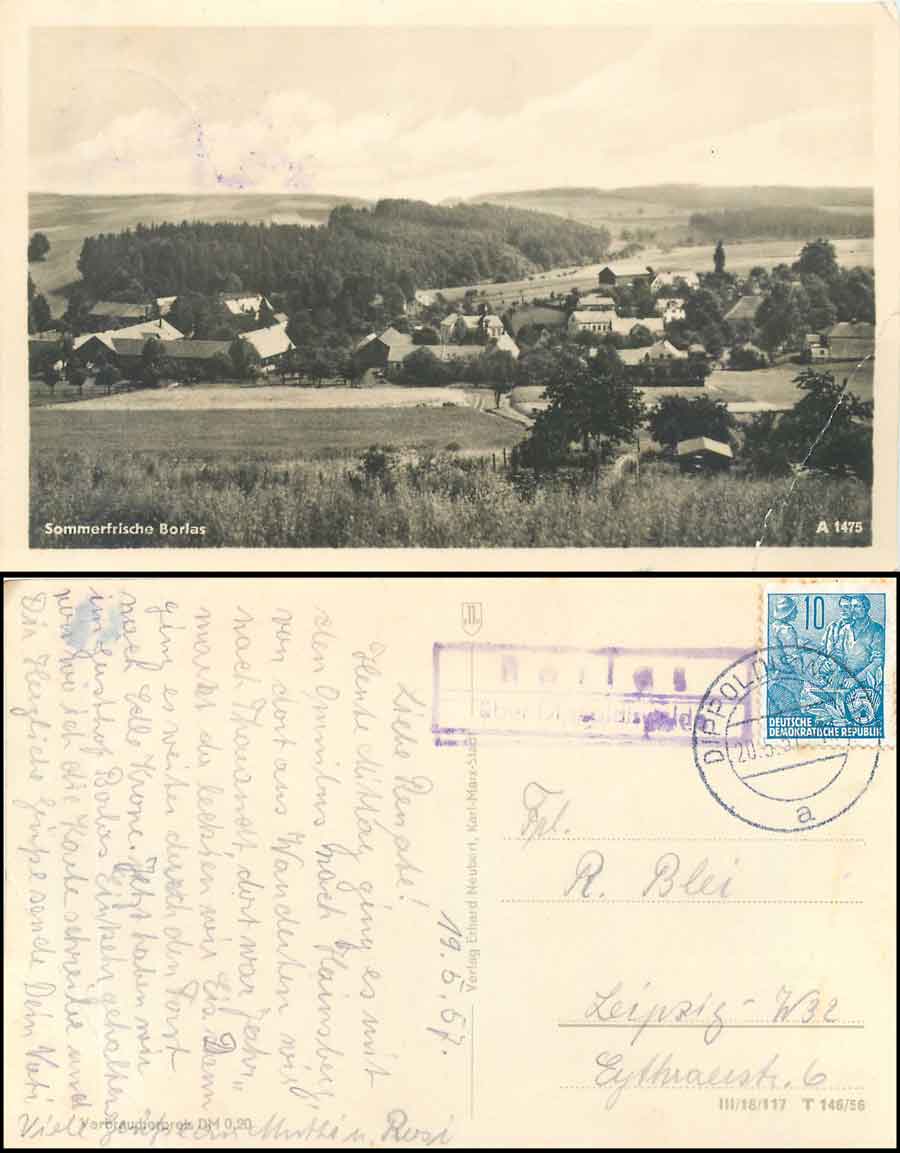 Sommerfrische Borlas
A 1475
19.5.57.
Liebe Renate!
Heute Mittag ging es mit
dem Omnibus nach Hainsberg,
von dort aus Wanderten wir
nach Tharandt, dort war Jahr-
markt da leckten wir Eis Dann
ging es weiter durch den Forst
nach Edle Krone. Jetzt haben wir
im Gasthof Bolas Einkehr gehalten
von wo ich die Karte schreibe und
Dir Herzliche Grüße sende Dein Vati
Viele Grüße an Mutti u. Rosi
Verbraucherpreis DM 0,20
Verlag Erhard Neubert, Karl-Marx-Stadt
Borlas
über Dippoldiswalde
DIPPOLDISWALDE
20.5.57
a
10
5
DEUTSCHE
DEMOKRATISCHE REPUBLIK
Frl.
R. Blei
Leipzig-W32
Cythraestr. 6
III/18/117 T 146/56